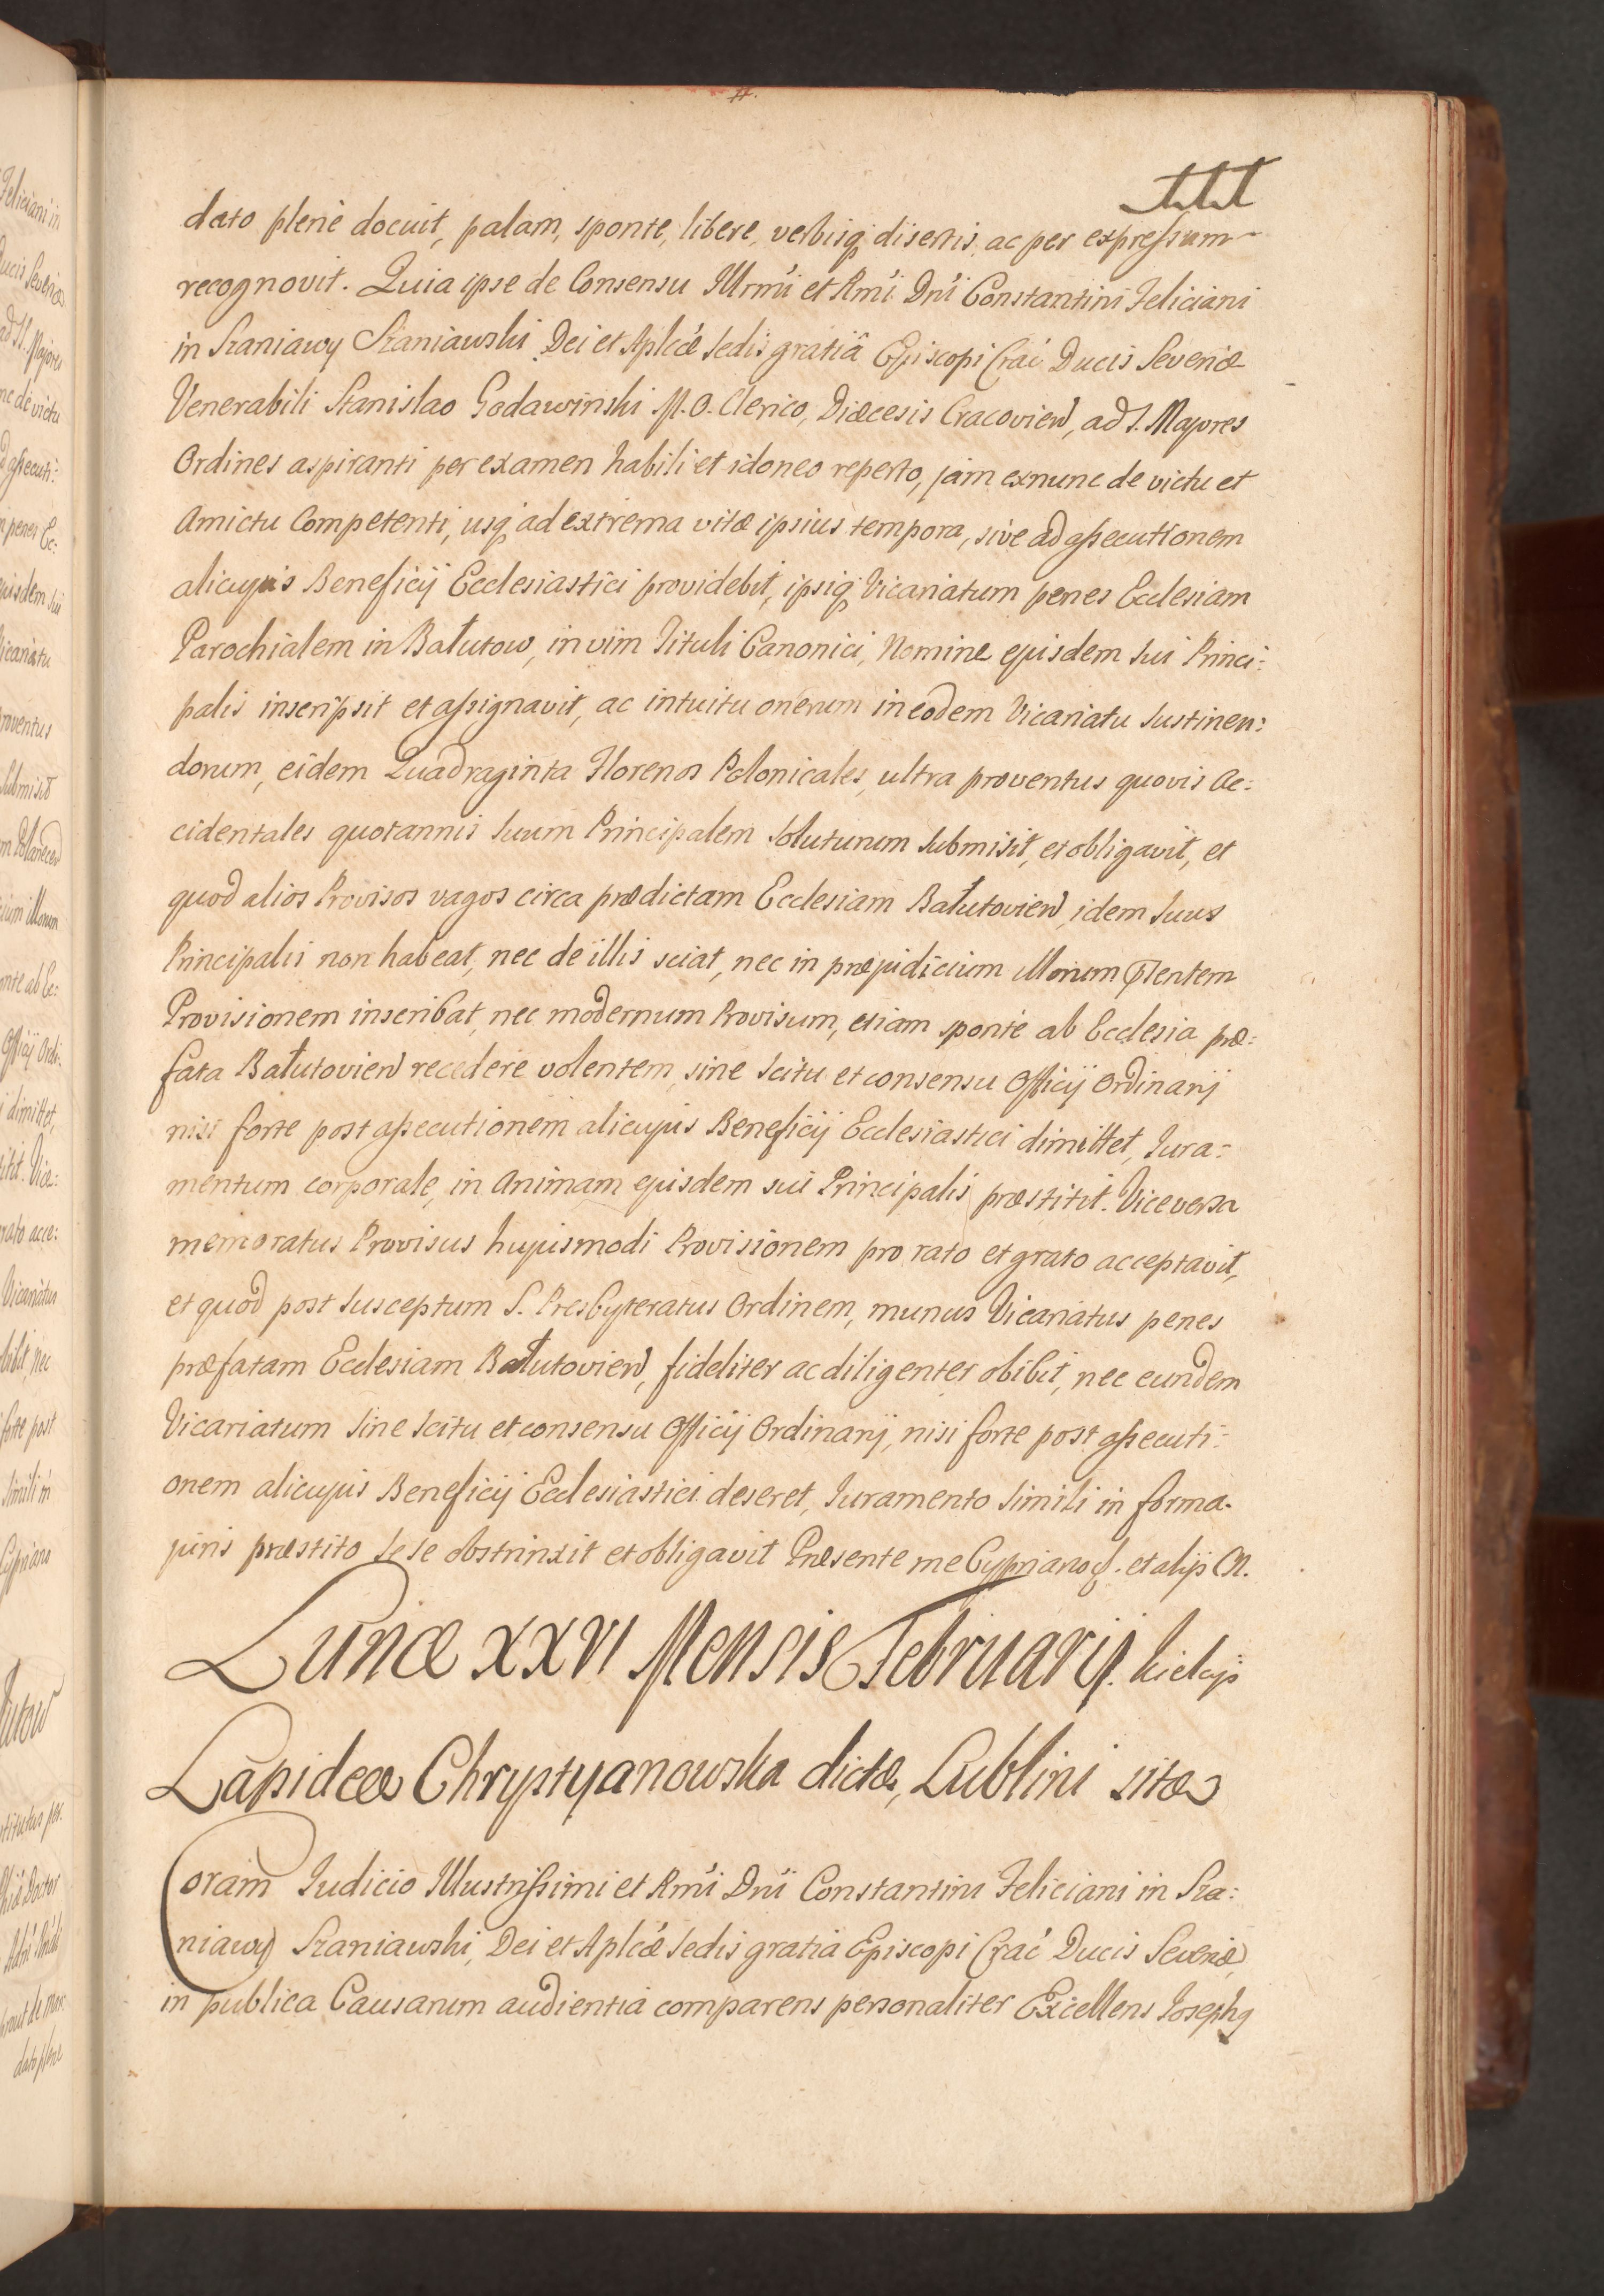 dato plenè docuit, palam, sponte, libere, verbisq disertis, ac per expressum
recognovit. Quia ipse de Consensu Illrmi et Rmi Dni Constantini Feliciani
in Szaniawy Szaniawski Dei et Aplcæ Sedis gratiâ Episcopi Crac Ducis Severiæ
Venerabili Stanislao Godawinski M. O. Clerico, Diæcesis Cracovien, ad S. Majores
Ordines aspiranti per examen habili et idoneo reperto, jam exnunc de victu et
Amictu Competenti, usq ad extrema vitæ ipsius tempora, sive ad assecutionem
alicujus Beneficij Ecclesiastici providebit, ipsiq Vicariatum penes Ecclesiam
Parochialem in Bałutow, in vim Tituli Canonici, Nomine ejusdem sui Princi:
palis inscripsit et assignavit, ac intuitu onerum in eodem Vicariatu Sustinen:
dorum, eidem Quadraginta Florenos Polonicales, ultra proventus quovis Ac:
cidentales quotannis Suum Principalem Soluturum Submisit, et obligavit, et
quod alios Provisos vagos circa prædictam Ecclesiam Bałutovien, idem Suus
Principalis non habeat, nec de illis sciat, nec in præjudicium illorum pntentem
Provisionem inscribat, nec modernum Provisum, etiam sponte ab Ecclesia præ:
fata Bałutovien recedere volentem, sine Scitu et consensu Officij Ordinarij
nisi forte post assecutionem alicujus Beneficij Ecclesiastici dimittet, Jura:
mentum corporale, in Animam ejusdem sui Principalis præstitit. Viceversa
memoratus Provisus hujusmodi Provisionem pro rato et grato acceptavit,
et quod post Susceptum S. Presbyteratus Ordinem, munus Vicariatus penes
præfatam Ecclesiam Bałutovien, fideliter ac diligenter obibit, nec eundem
Vicariatum Sine Scitu et consensu Officij Ordinarij, nisi forte post assecuti:
onem alicujus Beneficij Ecclesiastici deseret, Juramento Simili in forma
juris præstito Sese obstrinxit et obligavit Præsente me Cypriano . et alijs
Lunæ XXVI Mensis Februarij.
Lapideæ Chrystyanowska dictæ, Lublini sitæ
Coram Judicio Illustrissimi et Rmi Dni Constantini Feliciani in Sza:
niawy Szaniawski, Dei et Aplcæ Sedis gratia Episcopi Crac Ducis Severiæ
in publica Causarum audientia comparens personaliter Excellens Josephq